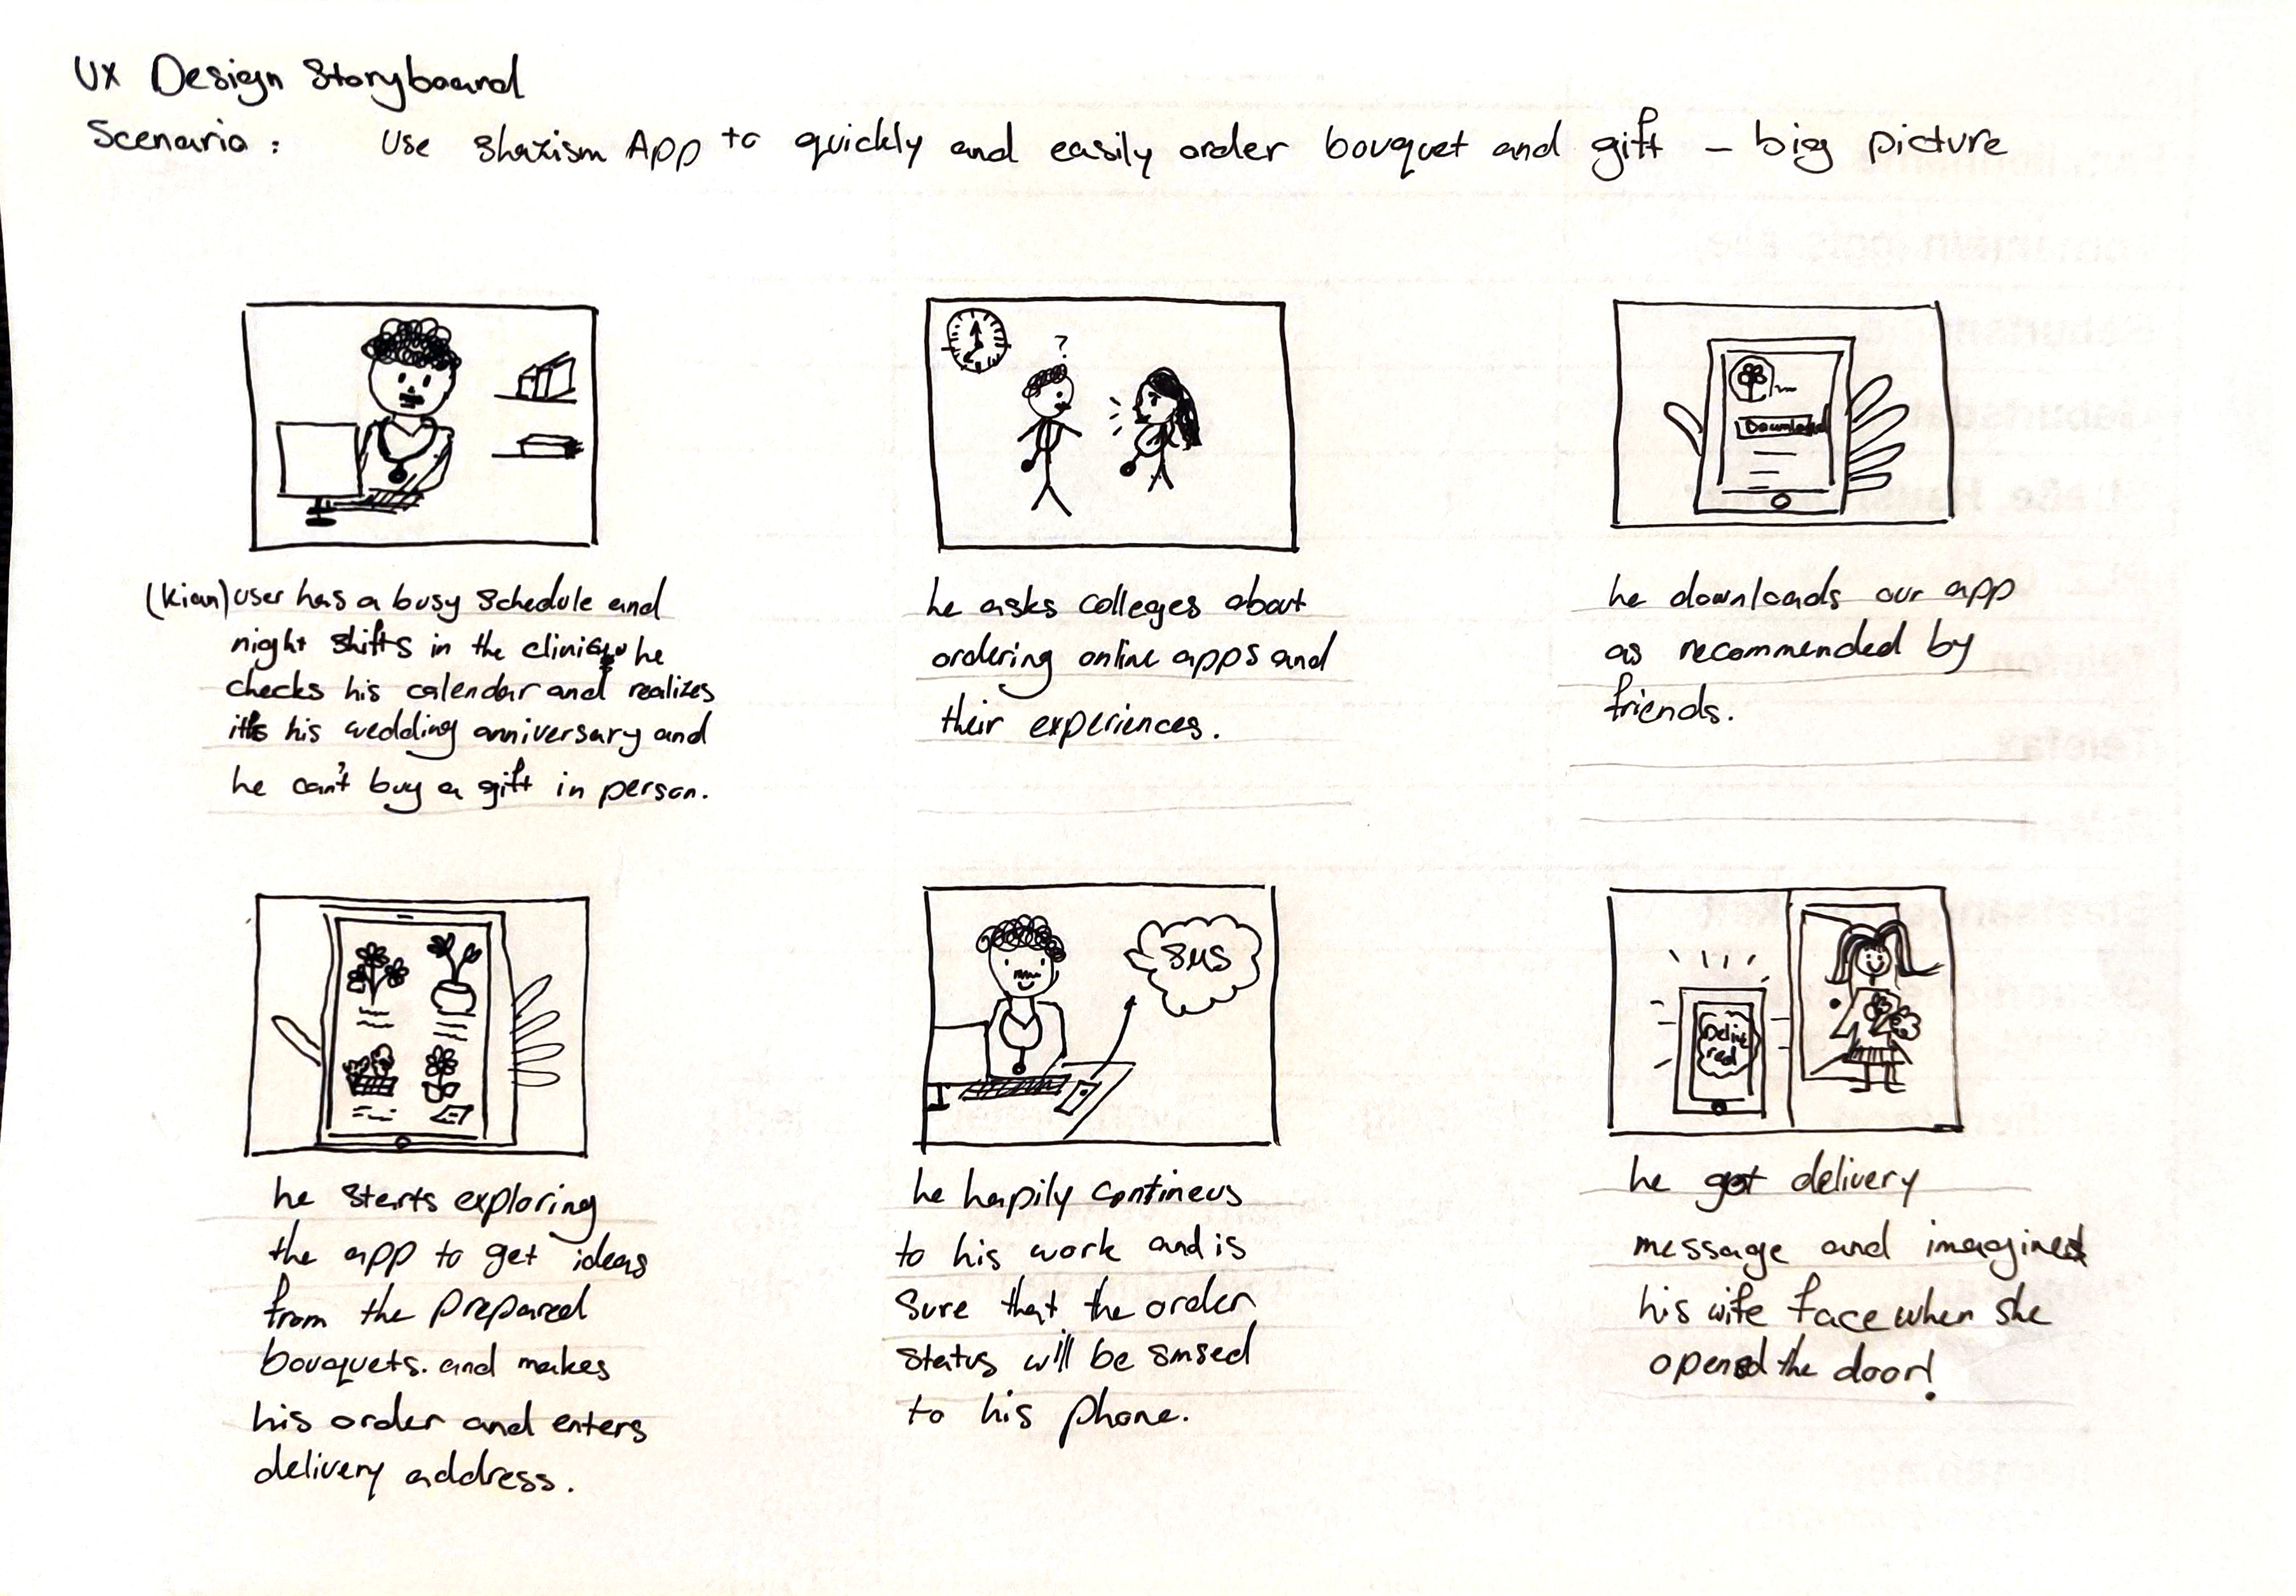 UX Design Storyboard
Scenario : Use Shazism App to quickly and easily order bouquet and gift – big picture
?
Download
(Kian) user has a busy schedule and
night shifts in the clinique he
checks his calendar and realizes
it's his wedding anniversary and
he can't buy a gift in person.
he asks colleges about
ordering online apps and
their experiences.
he downloads our app
as recommended by
friends.
SMS
Delive
red
he starts exploring
the app to get ideas
from the prepared
bouquets. and makes
his order and enters
delivery address.
he hapily contineus
to his work and is
sure that the order
status will be smsed
to his phone.
he got delivery
message and imagines
his wife face when she
opened the door!